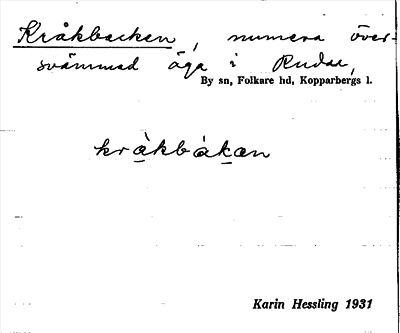 Kråkbacken, numera över-
svämmad äga i Rudu,
By sn, Folkare hd, Kopparbergs l.
kràkbákan
Karin Hessling 1931